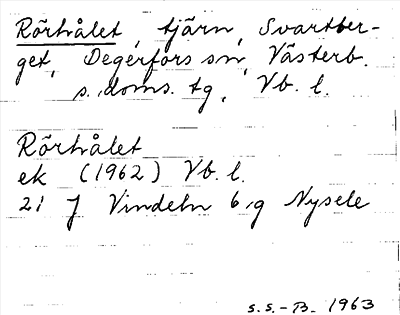 Rörhålet, tjärn, Svartber-
get, Degerfors sn, Västerb.
s. doms. tg, Vb. l.
Rörhålet
ek (1962) Vb. l.
21 J Vindeln 6 g Nysele
S.S.-B. 1963